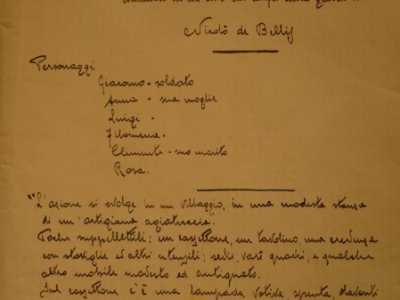 Nicolò de Bellis
Personaggi
Giacomo - soldato
Anna - sua moglie
Luigi -
Filomena -
Clemente - suo marito
Rosa.
L'azione si svolge in un villaggio, in una modesta stanza
di un'artigiana agiatuccia.
Poche suppellettili: un cassettone, un tavolino una credenza
con stoviglie ed altri utensili; sedie, vari quadri, e qualche
altro mobile modesto ed antiquato.
Sul cassettone c'è una lampada votiva spenta davanti